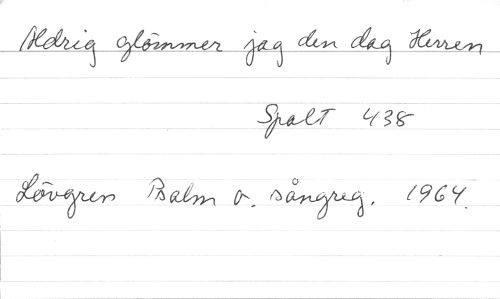 Aldrig glömmer jag den dag Herren
Spalt 438
Lövgren Psalm o. sångreg. 1964.